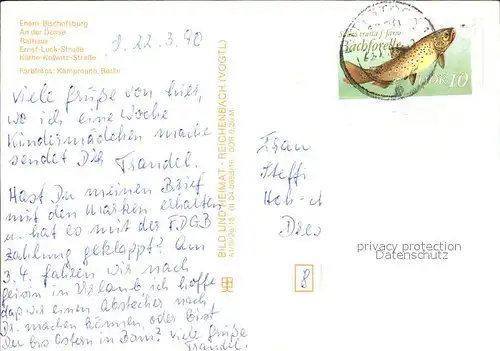 Ehem. Bischofsburg
An der Dosse
Rathaus
Ernst-Luck-Straße
Käthe-Kollwitz-Straße
Farbfotos: Kampmann, Berlin
22. 3. 90
Viele Grüße von hier,
wo ich eine Woche
Kindermädchen mache
sendet Dir Traudel.
Hast Du meinen Brief
mit den Marken erhalten
u. hat es mit der FDGB
Zahlung geklappt? Am
3. 4. fahren wir nach
in Urlaub ich hoffe
daß wir einen Abstecher nach
Dr. machen können, oder bist
Du bis Ostern in Bonn? Viele Grüße
Traudel.
BILD UND HEIMAT · REICHENBACH (VOGTL)
DDR 0,20 M
Salmo trutta f. fario
Bachforelle
DDR 10
Frau
Steffi
Hoh
Dres
privacy protection
Datenschutz
8